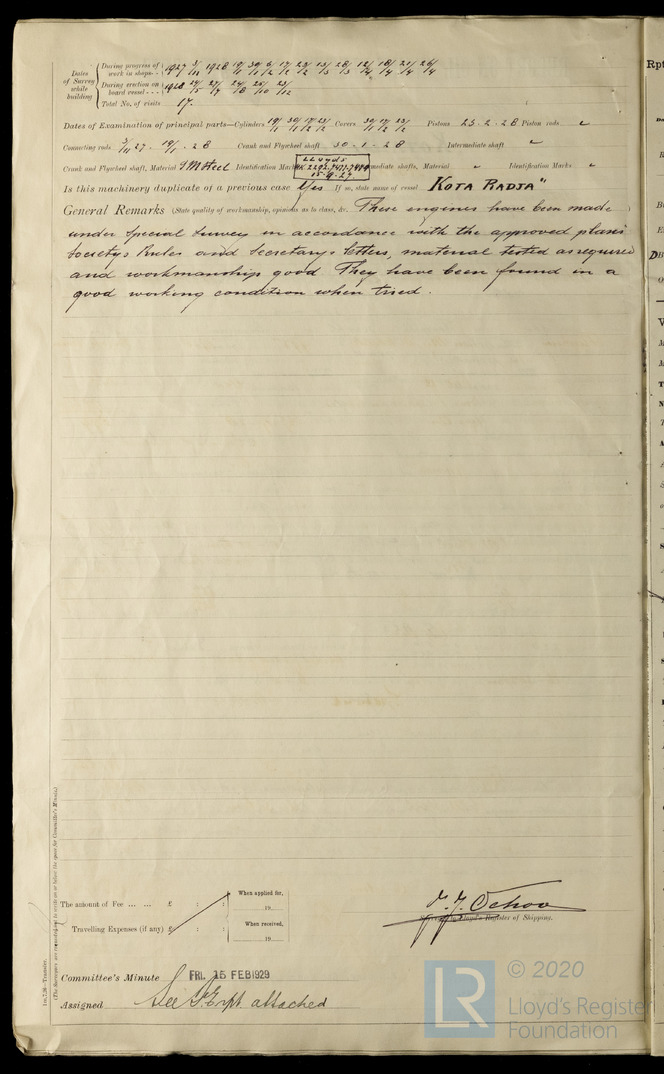 Dates of Survey while building
During progress of work in shops - - 1927 3/11 1928 19/1 30/1 6/2 17/2 23/2 13/3 28/3 12/4 18/4 21/4 26/4
During erection on board vessel - - - 1928 24/5 27/7 24/8 25/10 23/12
Total No. of visits 17.
Dates of Examination of principal parts—Cylinders 19/1 30/1 17/2 23/2 Covers 30/1 17/2 23/2 Pistons 23-2-28 Piston rods "
Connecting rods 3/11 27 - 19/1 - 28 Crank and Flywheel shaft 30-1-28 Intermediate shaft "
LLOYDS
Crank and Flywheel shaft, Material S M Steel Identification Mark 2292-7477-7479 Intermediate shafts, Material " Identification Marks "
15-9-27
Is this machinery duplicate of a previous case Yes If so, state name of vessel KOTA RADJA"
General Remarks (State quality of workmanship, opinions as to class, &c. These engines have been made
under Special Survey in accordance with the approved plans
Societys Rules and Secretarys letters, material tested as required
and workmanship good They have been found in a
good working condition when tried.
The amount of Fee ... ... £ : :
When applied for,
19
Travelling Expenses (if any) £ : :
When received,
19
Surveyor to Lloyd's Register of Shipping.
Committee's Minute FRI. 15 FEB 1929
Assigned See
attached
Im.7.26—Transfer.
(The Surveyors are requested not to write on or below the space for Committee's Minute.)
Rpt
LR
© 2020
Lloyd's Register
Foundation